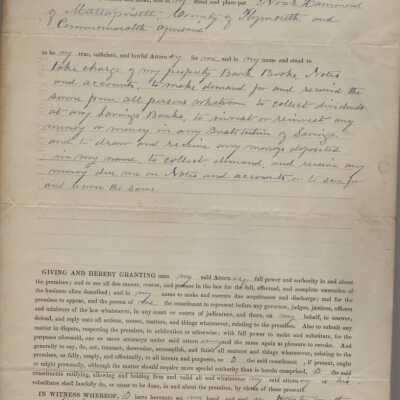 stead and place put Noah Hammond
of Mattapoisett, County of Plymouth and
Commonwealth aforesaid
to be my true, sufficient, and lawful Attorney for me and in my name and stead to
take charge of my property Bank Books, Notes
and accounts, to make demand for and receive the
same from all persons whatsoever to collect dividends
at any Savings Banks, to invest or reinvest any
money or moneys in any Institution of Savings
and to draw and receive any moneys deposited
in my name to collect demand, and receive any
money due me on Notes and accounts or to sue for
and the same
GIVING AND HEREBY GRANTING unto my said Attorney full power and authority in and about
the premises; and to use all due means, course, and process in the law for the full, effectual, and complete execution of
the business afore described; and in my name to make and execute due acquittance and discharge; and for the
premises to appear, and the person of me the constituent to represent before any governor, judges, justices, officers
and ministers of the law whatsoever, in any court or courts of judicature, and there, on my behalf, to answer,
defend, and reply unto all actions, causes, matters, and things whatsoever, relating to the premises. Also to submit any
matter in dispute, respecting the premises, to arbitration or otherwise; with full power to make and substitute, for the
purposes aforesaid, one or more attorneys under said attorney and the same again at pleasure to revoke. And
generally to say, do, act, transact, determine, accomplish, and finish all matters and things whatsoever, relating to the
premises, as fully, amply, and effectually, to all intents and purposes, as I the said constituent if present, ought
or might personally, although the matter should require more special authority than is herein comprised, I the said
constituent ratifying, allowing, and holding firm and valid all and whatsoever my said attorney or his
substitutes shall lawfully do, or cause to be done, in and about the premises, by virtue of these presents.
IN WITNESS WHEREOF, I have hereunto set my hand and seal